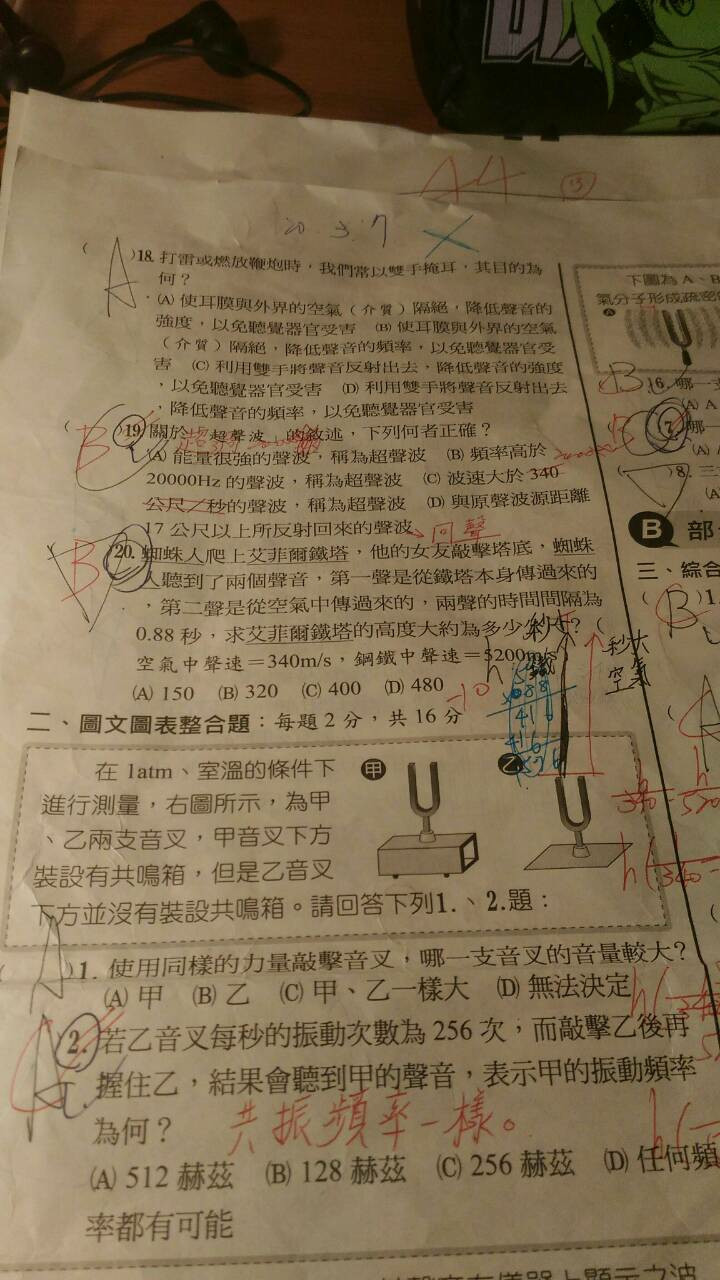 A4 (13)
20.3.7
A
( )18. 打雷或燃放鞭炮時，我們常以雙手掩耳，其目的為
何？
(A) 使耳膜與外界的空氣（介質）隔絕，降低聲音的
強度，以免聽覺器官受害 (B) 使耳膜與外界的空氣
（介質）隔絕，降低聲音的頻率，以免聽覺器官受
害 (C) 利用雙手將聲音反射出去，降低聲音的強度
，以免聽覺器官受害 (D) 利用雙手將聲音反射出去
，降低聲音的頻率，以免聽覺器官受害
B
( )19. 關於「超聲波」的敘述，下列何者正確？
(A) 能量很強的聲波，稱為超聲波 (B) 頻率高於
20000Hz 的聲波，稱為超聲波 (C) 波速大於 340
公尺／秒的聲波，稱為超聲波 (D) 與原聲波源距離
17 公尺以上所反射回來的聲波
回聲
B
20. 蜘蛛人爬上艾菲爾鐵塔，他的女友敲擊塔底，蜘蛛
人聽到了兩個聲音，第一聲是從鐵塔本身傳過來的
，第二聲是從空氣中傳過來的，兩聲的時間間隔為
0.88 秒，求艾菲爾鐵塔的高度大約為多少公尺？（
空氣中聲速＝340m/s，鋼鐵中聲速＝5200m/s
(A) 150 (B) 320 (C) 400 (D) 480
-10
秒大
空氣
二、圖文圖表整合題：每題 2 分，共 16 分
在 1atm、室溫的條件下
進行測量，右圖所示，為甲
、乙兩支音叉，甲音叉下方
裝設有共鳴箱，但是乙音叉
下方並沒有裝設共鳴箱。請回答下列1.、2.題：
甲
乙
A
( )1. 使用同樣的力量敲擊音叉，哪一支音叉的音量較大？
(A) 甲 (B) 乙 (C) 甲、乙一樣大 (D) 無法決定
2. 若乙音叉每秒的振動次數為 256 次，而敲擊乙後再
握住乙，結果會聽到甲的聲音，表示甲的振動頻率
為何？
共振頻率一樣。
(A) 512 赫茲 (B) 128 赫茲 (C) 256 赫茲 (D) 任何頻
率都有可能
下圖為 A、B
氣分子形成疏密
A
B
16. 哪一支
(A) A
7. 哪一
(A)
8. 三
(A)
B 部
三、綜合
B
1.